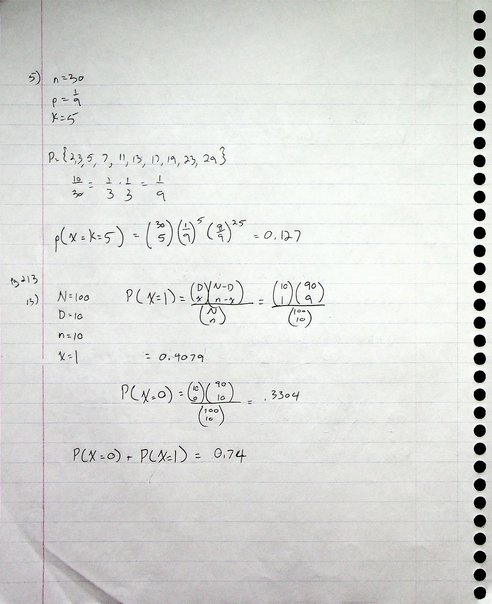 5) n=30
p = 1/9
k=5
P={2,3,5,7,11,13,17,19,23,29}
10/30 = 1/3 · 1/3 = 1/9
p(x=k=5) = (30 5)(1/9)^5 (8/9)^25 = 0.127
p213
13) N=100 P(x=1) = (D x)(N-D n-x)/(N n) = (10 1)(90 9)/(100 10)
D=10
n=10
x=1 = 0.4079
P(X=0) = (10 0)(90 10)/(100 10) = .3304
P(X=0) + P(X=1) = 0.74